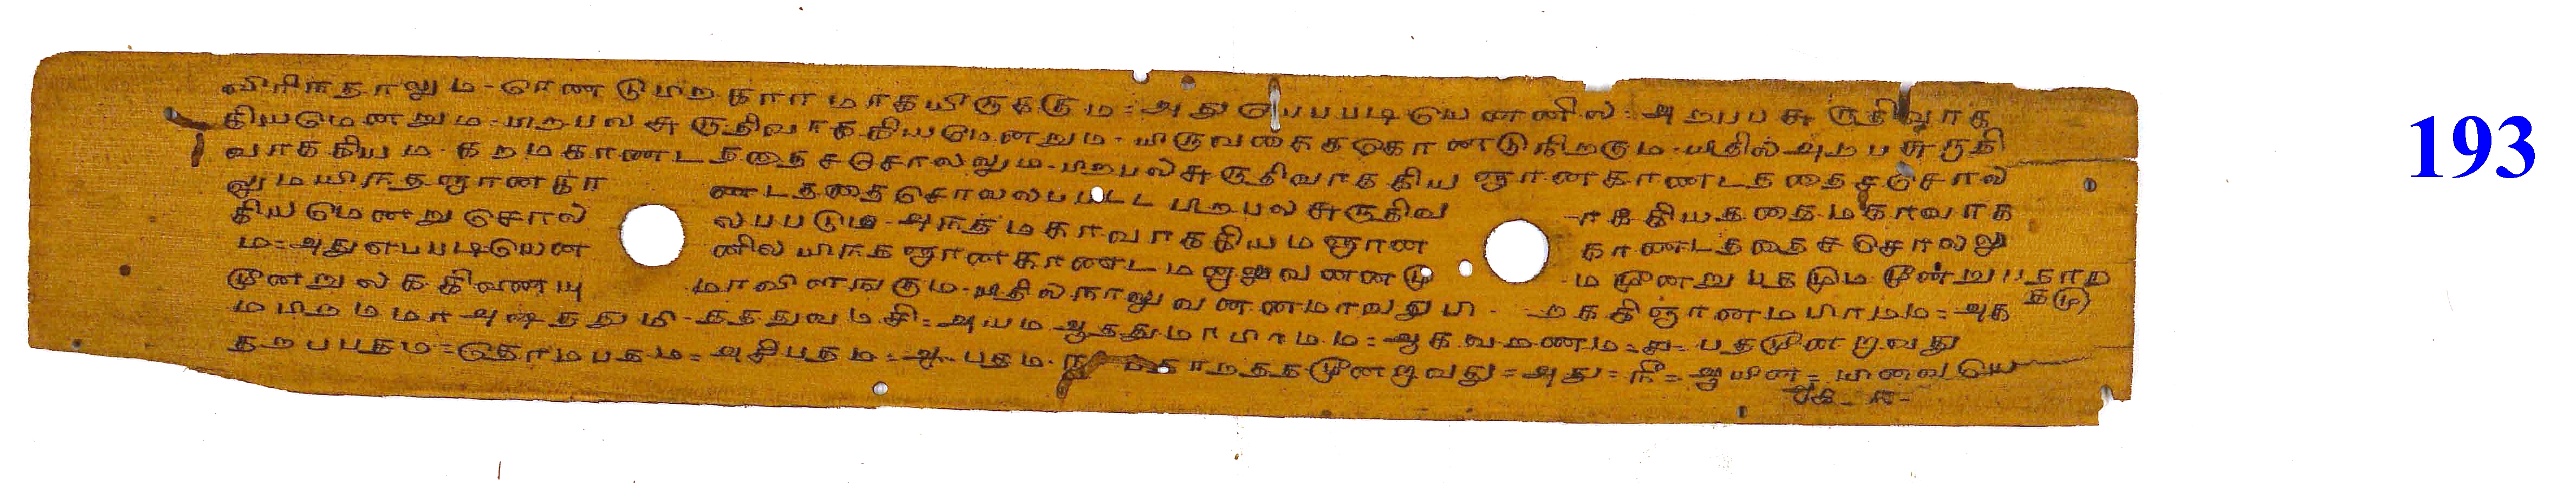 விரிாதாலும - ரணடுமிறகார மாகயிருககும = அது யெபபடியெனனில = அறப சுருதிவாக
கியமெனறும - பிறபல சுருதிவாககியமெனறும - யிருவகைகொணடு நிறகும - யிதில அறப சுருதி
வாககியம - கறமகாணடததைச சொலலும - பிறபல சுருதிவாககிய ஞானகாணடததைச சொல
லும யிநதஞானகா ணடததைசொலலபபடட பிறபல சுருதிவ ாககியததை மகாவாக
கியமெனறு சொல லபபடும - அநத மகாவாககியம ஞான காணடததைச சொலலு
ம = அது எபபடியென னில யிநத ஞானகாணடம னாலுவணணமு ம மூனறு பதமும மூனறு பதாற
தமு
மூனறு லககிணையு மாவிளஙகும - யிதில நாலு வணணமாவது பி றககிஞானம பிரமம = அக
ம பிறமமா அஷததுமி - தததுவமசி = அயம ஆததுமா பிரமம = ஆக வமணம = ச - பதமூனறாவது
தறபதம = தொமபதம = அசிபதம = ஆ - பதம - ந பதாறததமூனறாவது = அது = நீ = ஆயின = யினவயெ